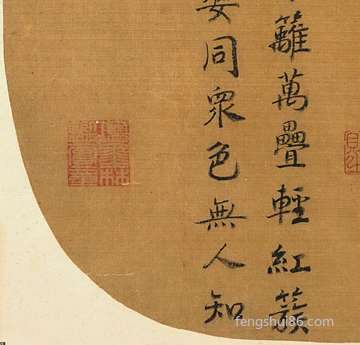 籬萬疊輕紅簇
同衆色無人知
fengshui86.com